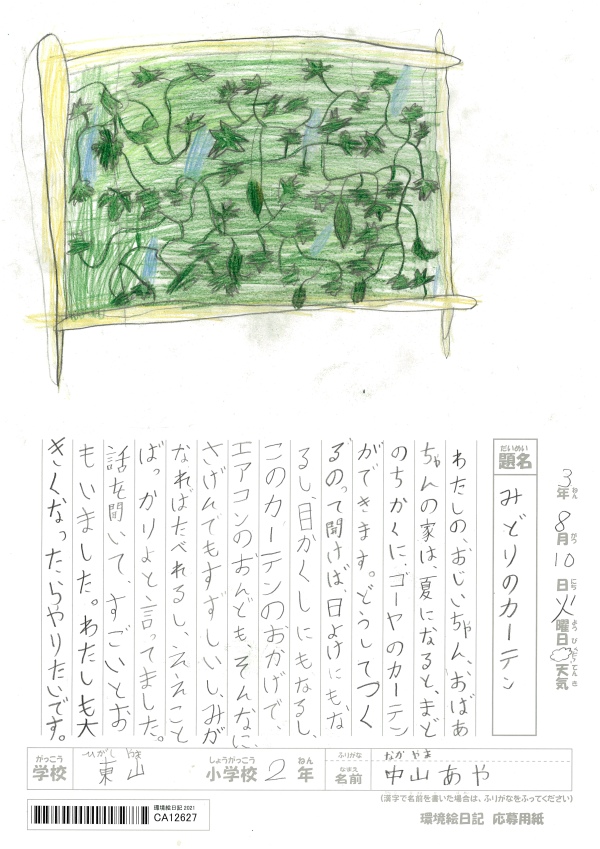 3年ねん8月がつ10日にち火曜日ようびてんき天気
だいめい
題名
みどりのカーテン
わたしの、おじいちゃん、おばあ
ちゃんの家は、夏になると、まど
のちかくに、ゴーヤのカーテン
ができます。どうしてつく
るのって聞けば、日よけにもな
るし、目かくしにもなるし、
このカーテンのおかげで、
エアコンのおんども、そんなに
さげんでもすずしいし、みが
なればたべれるし、ええこと
ばっかりよと、言ってました。
話を聞いて、すごいとお
もいました。わたしも大
きくなったらやりたいです。
がっこう
学校
ひがし やま
東山
しょうがっこう
小学校
2
ねん
年
ふりがな
なか やま
なまえ
名前
中山あや
(漢字で名前を書いた場合は、ふりがなをふってください)
環境絵日記 2021
CA12627
環境絵日記 応募用紙